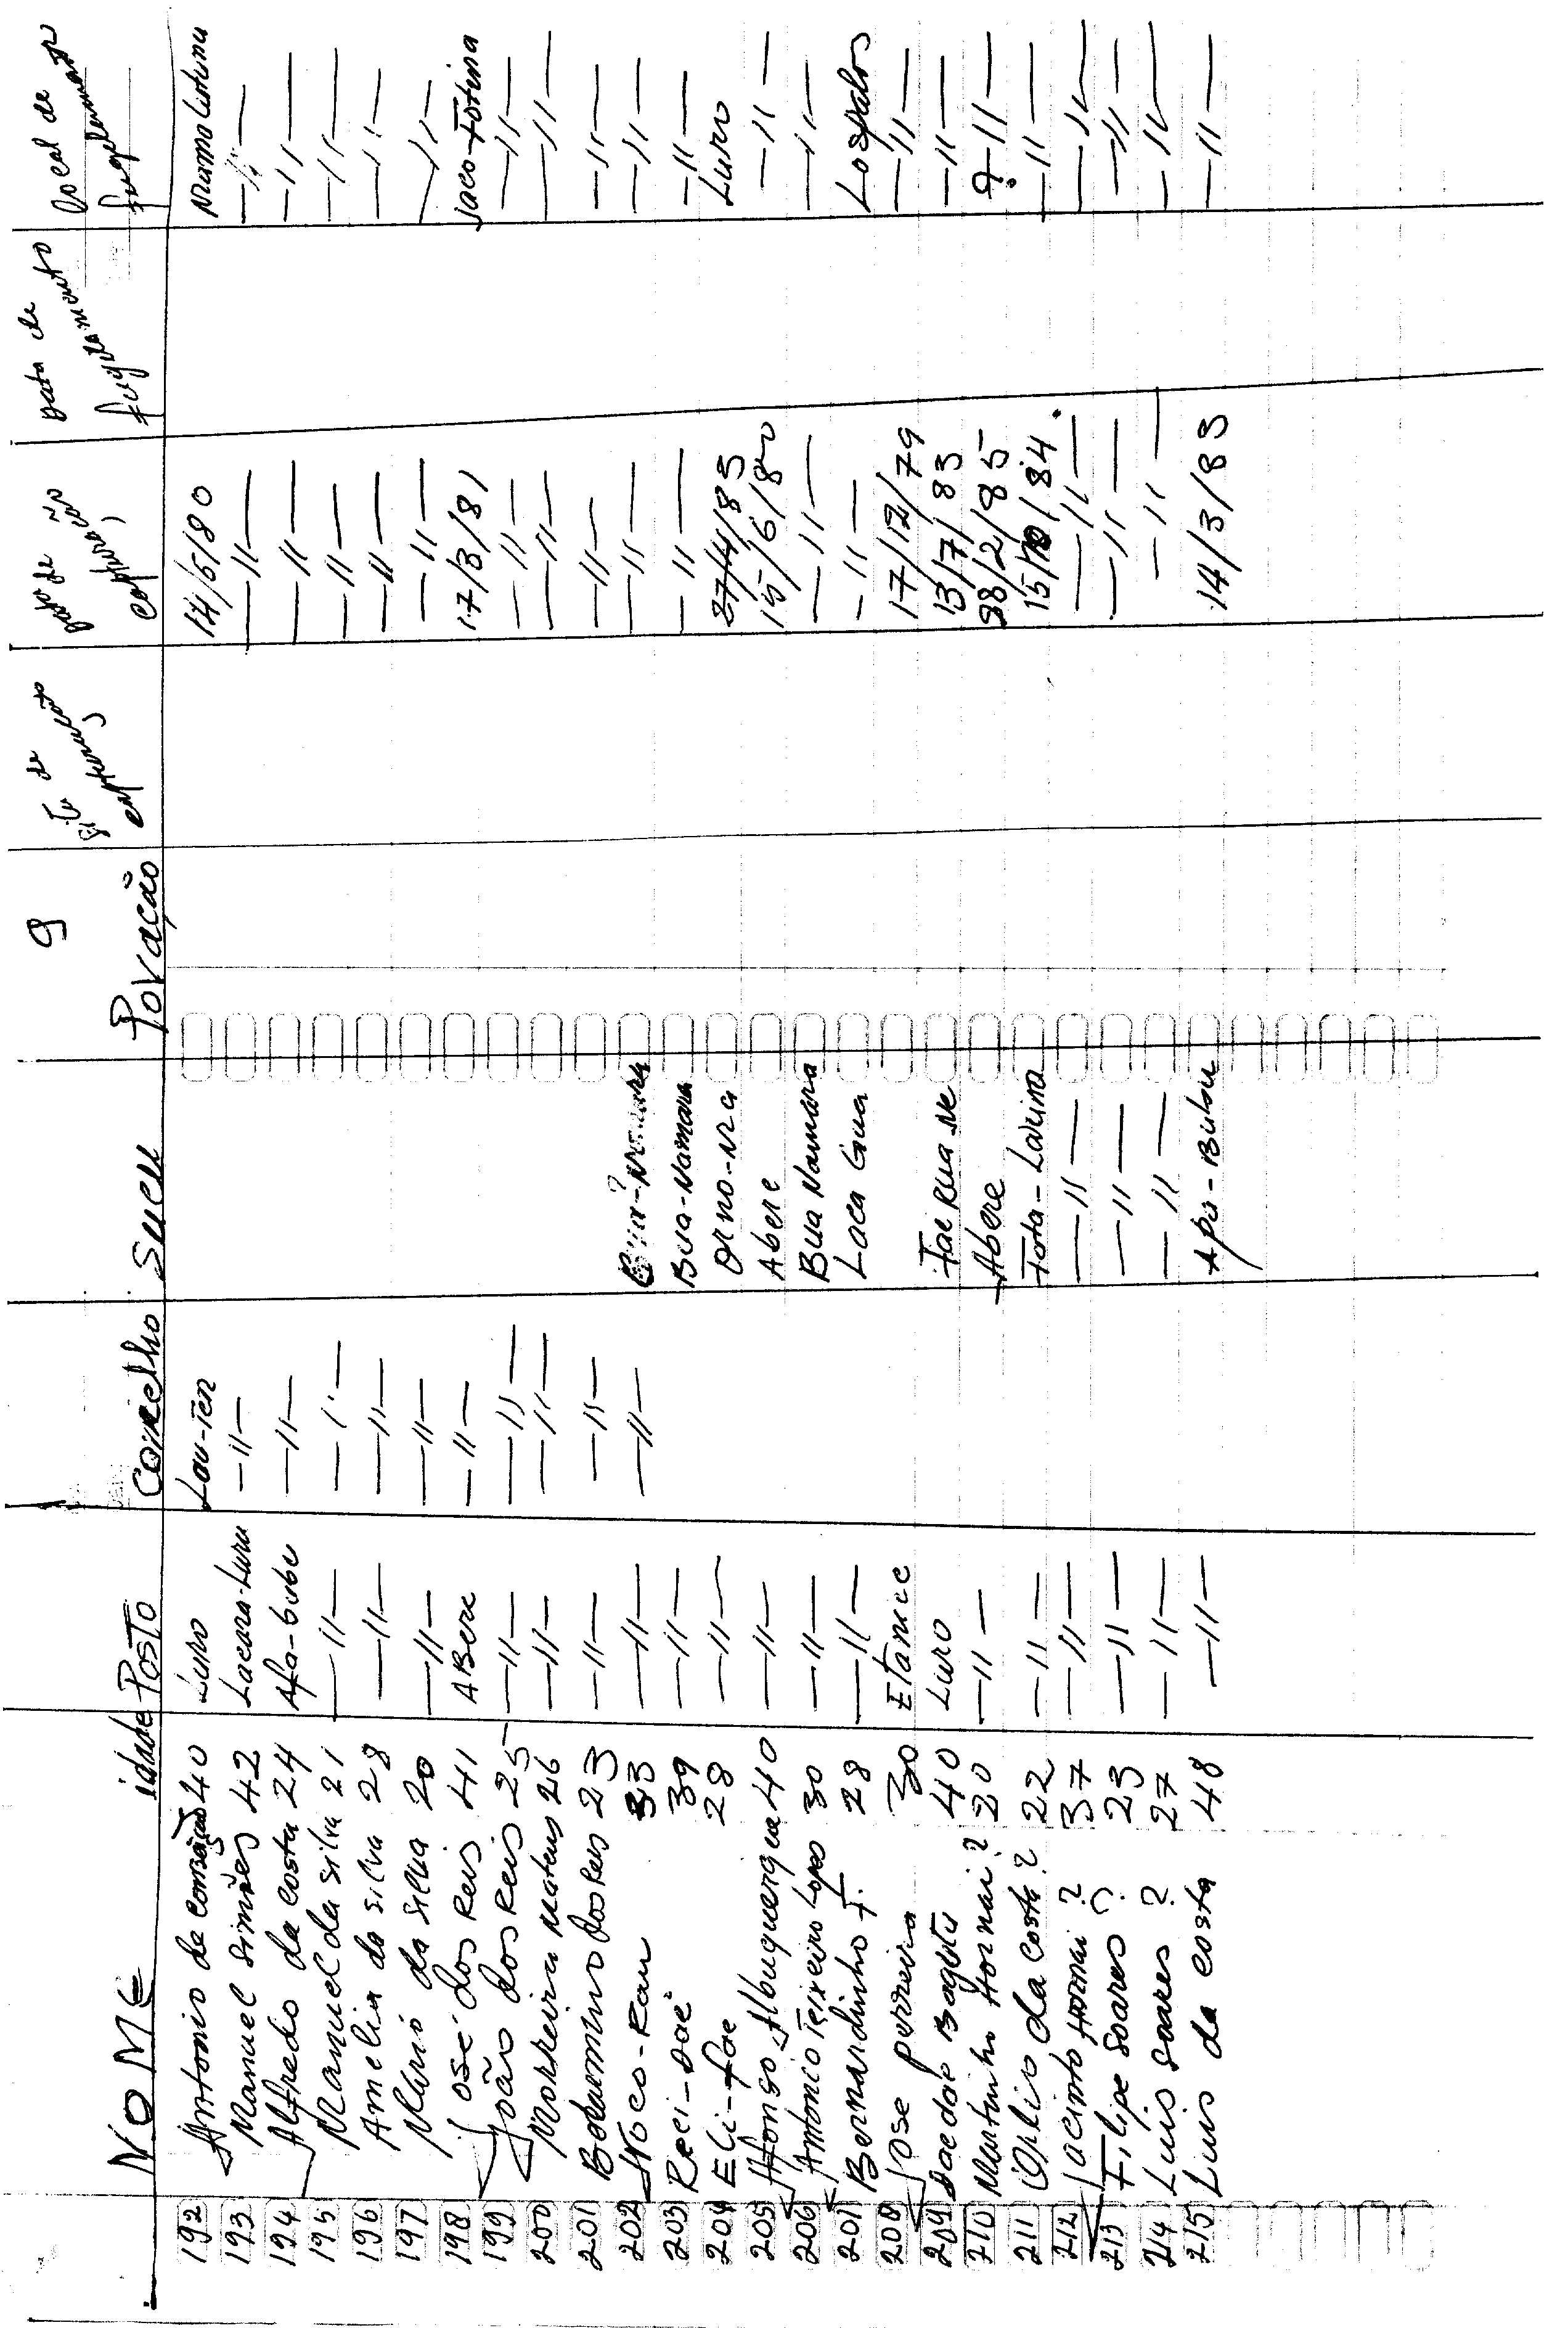 9
NOME idade Posto Concelho Suco Povação sitio de captura data de captura data de local de
192 Antonio de 40 Luro Lau-Ten 14/5/80
193 Manuel Simões 42 Lacara-Luro —11— —11— —11—
194 Alfredo da costa 24 Afa-bubu —11— —11— —11—
195 Manuel da silva 21 —11— —11— —11— —11—
196 Amelia da silva 28 —11— —11— —11— —11—
197 Murio da silva 20 —11— —11— —11— —11—
198 José dos Reis 41 ABere —11— 17/3/81 Jaco-Fotina
199 João dos Reis 25 —11— —11— —11— —11—
200 Morreira Mateus 26 —11— —11— —11— —11—
201 dos Reis 23 —11— —11— —11— —11—
202 Noco-Rau 33 —11— —11— —11— —11—
203 Reci-Daé 39 —11— Bua-Namara —11— —11—
204 Eli-fae 28 —11— Orno-Nra 27/4/83 Luro
205 Afonso Albuquerque 40 —11— Abere 15/6/80 —11—
206 Antonio Teixeiro Lopes 30 —11— Bua Namara —11— —11—
201 Bernardinho F. 28 —11— Laca Gua —11— Lospalos
208 Jose perreira 30 17/12/79 —11—
209 Daedae Baguta 40 Luro Fae Rua Ne 13/7/83 —11—
210 Martinho Hornai? 20 —11— Abere 28/2/85 ? —11—
211 da costa? 22 —11— Fota-Lavina 15/10/84. —11—
212 Jacinto Hornai ? 37 —11— —11— —11— —11—
213 Filipe Soares ? 23 —11— —11— —11— —11—
214 Luis Soares ? 27 —11— —11— —11— —11—
215 Luis da costa 48 —11— 14/3/83 —11—